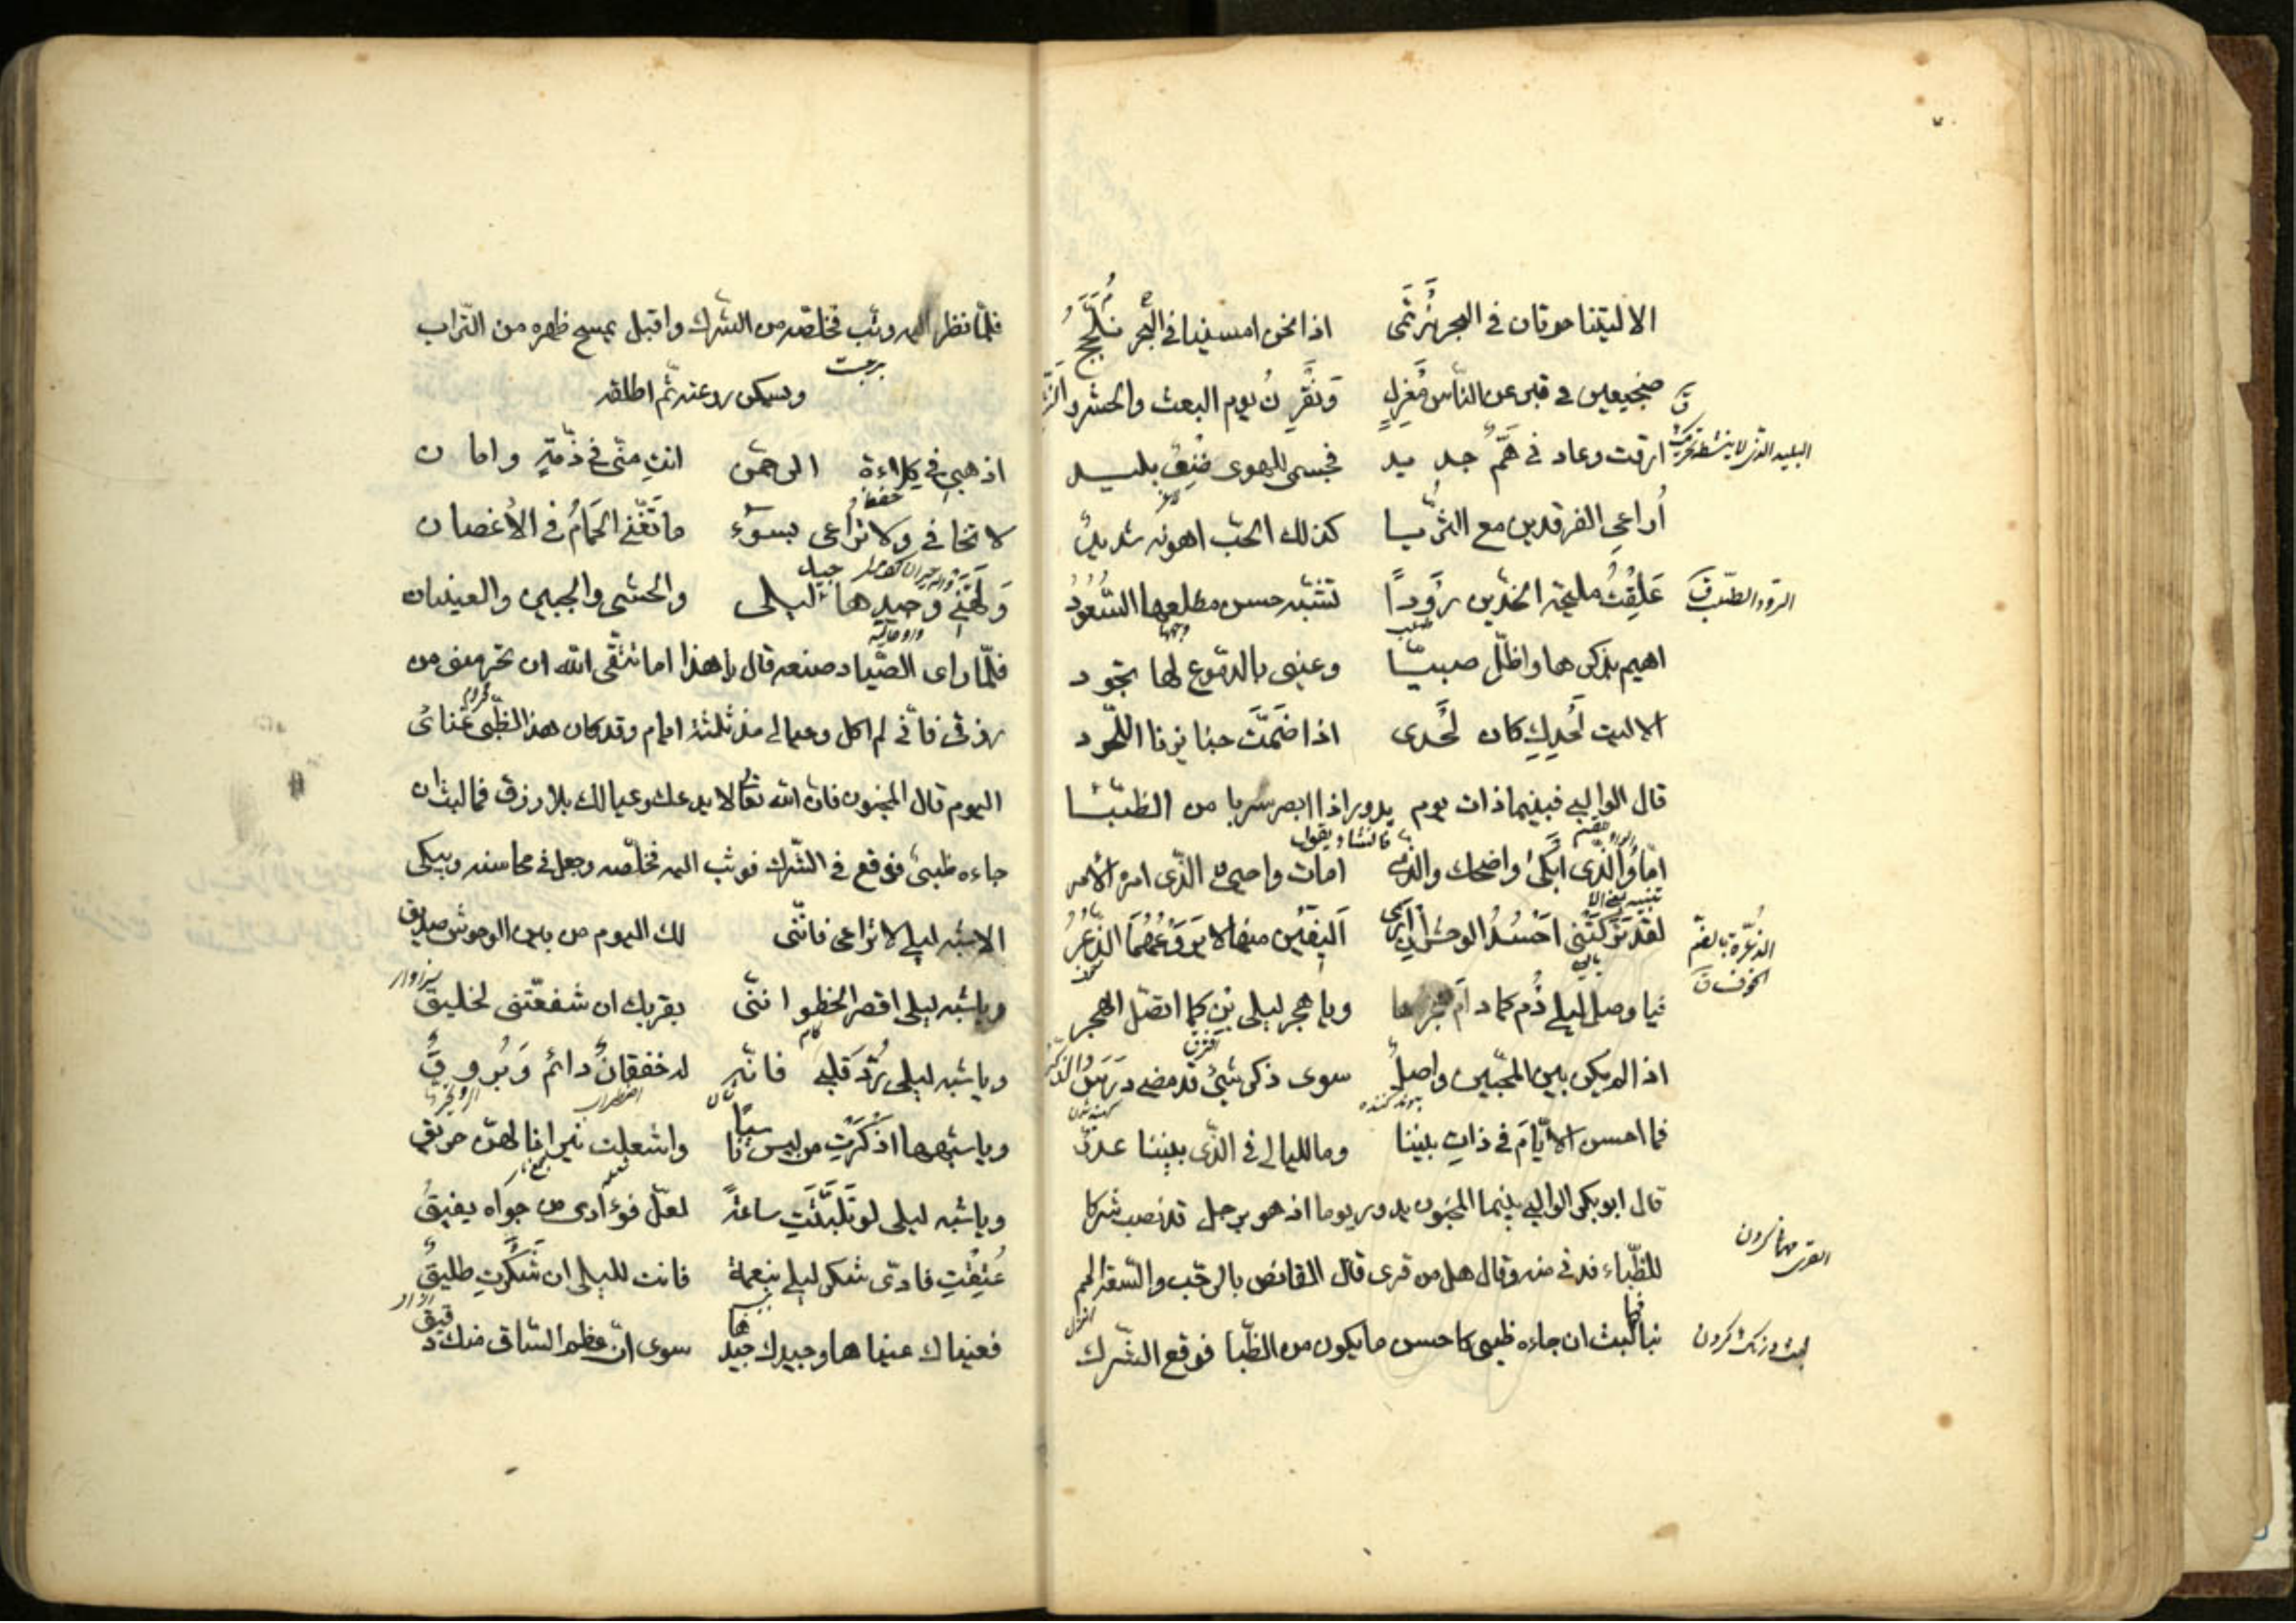 الا ليتنا حوتان في البحر نرتمي اذا نحن امسينا في البحر نلجج
ضجيعين في قبر عن الناس معزل ونقرن يوم البعث والحشر
ارقت وعاد في هم جديد فجسمي للهوى بليد
البليد الذي لا ينشطه تحريك
أراعي الفرقدين مع الثريا كذلك الحب اهونه شديد
عَلِقْتُ مليحة الخدين رؤدًا تشبه حسن مطلعها السُّعُودُ
اهيم بذكرها واظل صبّا وعيني بالدموع لها تجود
الا ليت لحدك كان لحدى اذا ضمت جنايزنا اللحود
قال الوالبي فبينما ذات يوم يدور اذا ابصر سربا من الظبا
فانشا ويقول
اما والذى ابكى واضحك والذى امات واحيى والذى امره الأمر
لقد تركتنى احسد الوحش ان ارى اليفين منها لا يروعهما الذعر
الذعرة بالضم الخوف ق
فيا وصل ليلى دُم كما دام هجرها ويا هجر ليلى بن كما اتصل الهجر
اذا لم يكن بين المحبين واصل سوى ذكر شئ قد مضى درس الذكر
پیوند کننده
فما احسن الايام في ذات بيننا وما لليالى فى الذى بيننا عذر
قال ابو بكر الوالبي بينما المجنون يدور يوما اذ هو برجل قد نصب شركا
للظباء فدنى منه وقال هل من قرى قال القانص بالرحب والسعة انزل
القرى مهمانى كردن
فما لبث ان جاءه ظبى كاحسن ما يكون من الظبا فوقع الشرك
لبث درنك كردن
فلمّا نظر اليه وثب فخلصه من الشرك واقبل يمسح ظهره من التراب
برجست
ويسكن روعته ثم اطلقه
اذهبى في كلاءة الرحمن انت منّى فى ذمّةٍ وامان
حفظ
لا تخافى ولا تراعى بسوء ما تغنّى الحَمَامُ فى الأغصان
وجيدها لليلى والحشى والجبين والعينان
فلمّا راى الصّياد صنعه قال يا هذا اما تتقى الله ان تحرمنى من
رزقى فانى لم اكل وعيالى منذ ثلثة ايام وقد كان هذا الظبى غنائى
اليوم قال المجنون فان الله تعالى لا يدعك وعيالك بلا رزق فما لبث ان
جاءه ظبى فوقع فى الشرك فوثب اليه فخلصه وجعل فى محاسنه ويبكى
الا شبه ليلى لا تراعى فانّنى لك اليوم من بين الوحوش صديق
ويا شبه ليلى اقصر الخطو اننى بقربك ان شفعتنى لخليق
سزاوار
ويا شبه ليلى رد قلبى فانه له خفقان دائم وبروق
اضطراب
ويا شبهها اذكرت من ليس ناسيا واشعلت نيرانا لهن حريق
ويا شبه ليلى لو تلبثت ساعة لعل فؤادى من جواه يفيق
عُتِقْتِ فادّى شكر ليلى بنعمة فانت لليلى ان شكرت طليق
فعيناك عيناها وجيدك جيدها سوى ان عظم الساق منك دقيق